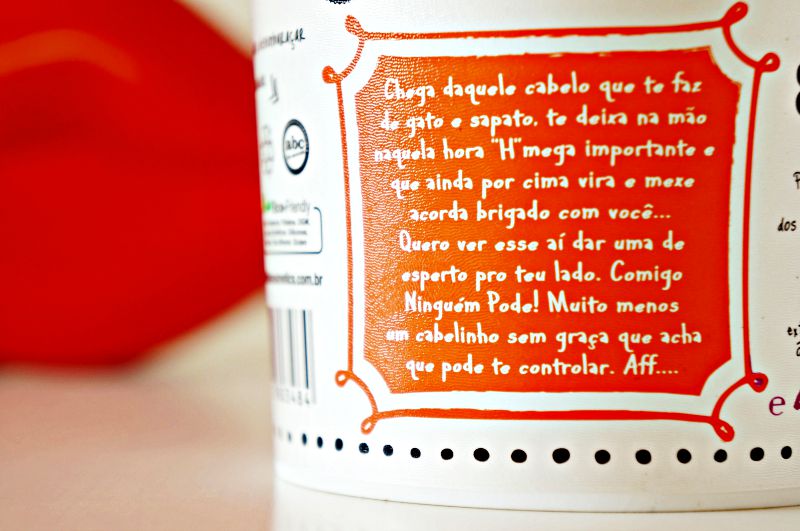 Chega daquele cabelo que te faz
de gato e sapato, te deixa na mão
naquela hora "H"mega importante e
que ainda por cima vira e mexe
acorda brigado com você...
Quero ver esse aí dar uma de
esperto pro teu lado. Comigo
Ninguém Pode! Muito menos
um cabelinho sem graça que acha
que pode te controlar. Aff....
abc
Friendly
.com.br
dos
e